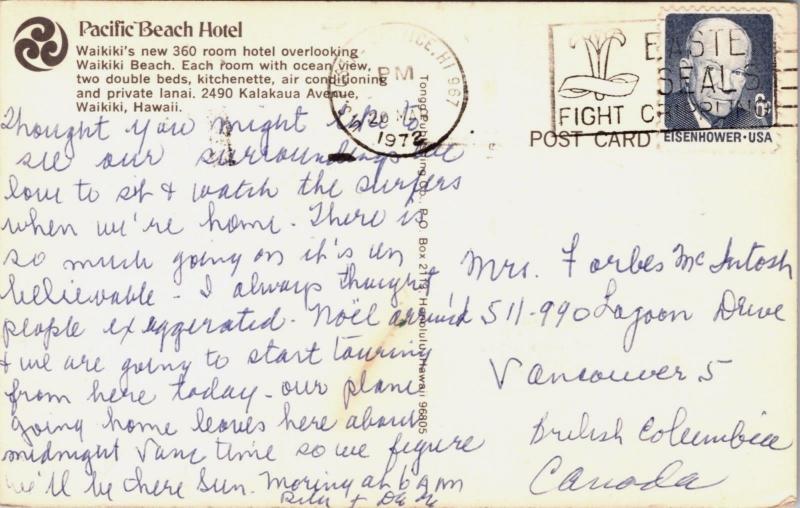 Pacific Beach Hotel
Waikiki's new 360 room hotel overlooking
Waikiki Beach. Each room with ocean view,
two double beds, kitchenette, air conditioning
and private lanai. 2490 Kalakaua Avenue,
Waikiki, Hawaii.
Thought you might like to
see our surroundings we
love to sit & watch the surfers
when we're home. There is
so much going on it's un
bellievable - I always thought
people exaggerated. Noël arrived
& we are going to start touring
from here today - our plane
going home leaves here about
midnight Vanc time so we figure
we'll be there Sun. Morning at 6 am
HI 967
PM
20
197
EASTE
SEALS
FIGHT
POST CARD
6¢
EISENHOWER·USA
Tongg Publishing Co., P.O. Box Honolulu, Hawaii 96805
Mrs. Forbes McIntosh
511-990 Lagoon Drive
Vancouver 5
British Columbia
Canada